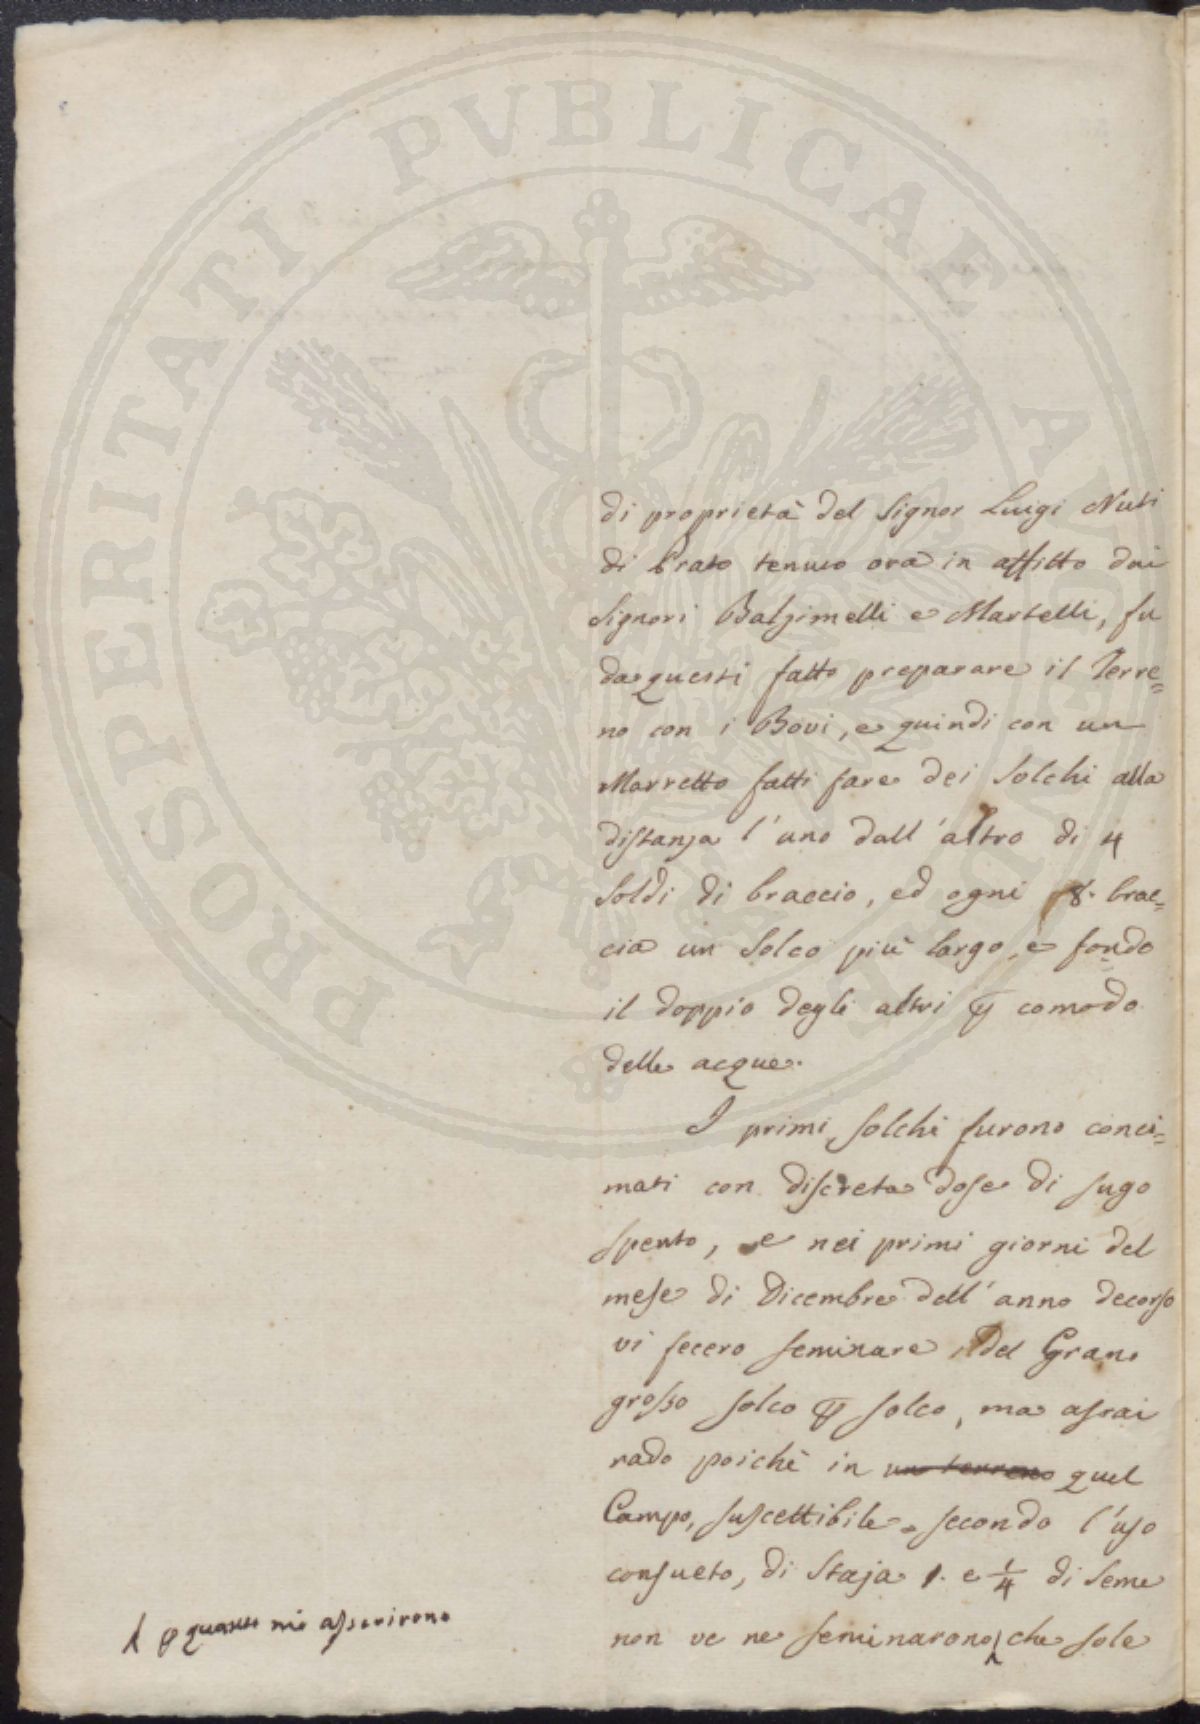 PROSPERITATI PVBLICAE AVGENDAE
di proprietà del Signor Luigi Nuti
di Prato tenuto ora in affitto dai
Signori Balzimelli e Martelli, fu
da questi fatto preparare il Terre=
no con i Bovi, e quindi con un
Marretto fatti fare dei Solchi alla
distanza l'uno dall'altro di 4
Soldi di braccio, ed ogni 8. brac=
cia un Solco più largo, e fondo
il doppio degli altri ꝑ comodo
delle acque.
I primi solchi furono conci=
mati con discreta dose di sugo
spento, e nei primi giorni del
mese di Dicembre dell'anno decorso
vi fecero seminare del Grano
grosso solco ꝑ solco, ma assai
rado poichè in un terreno quel
Campo, suscettibile secondo l'uso
consueto, di Staja 1. e 1/4 di Seme
non ve ne seminarono che sole
ꝑ quanto mi asserirono